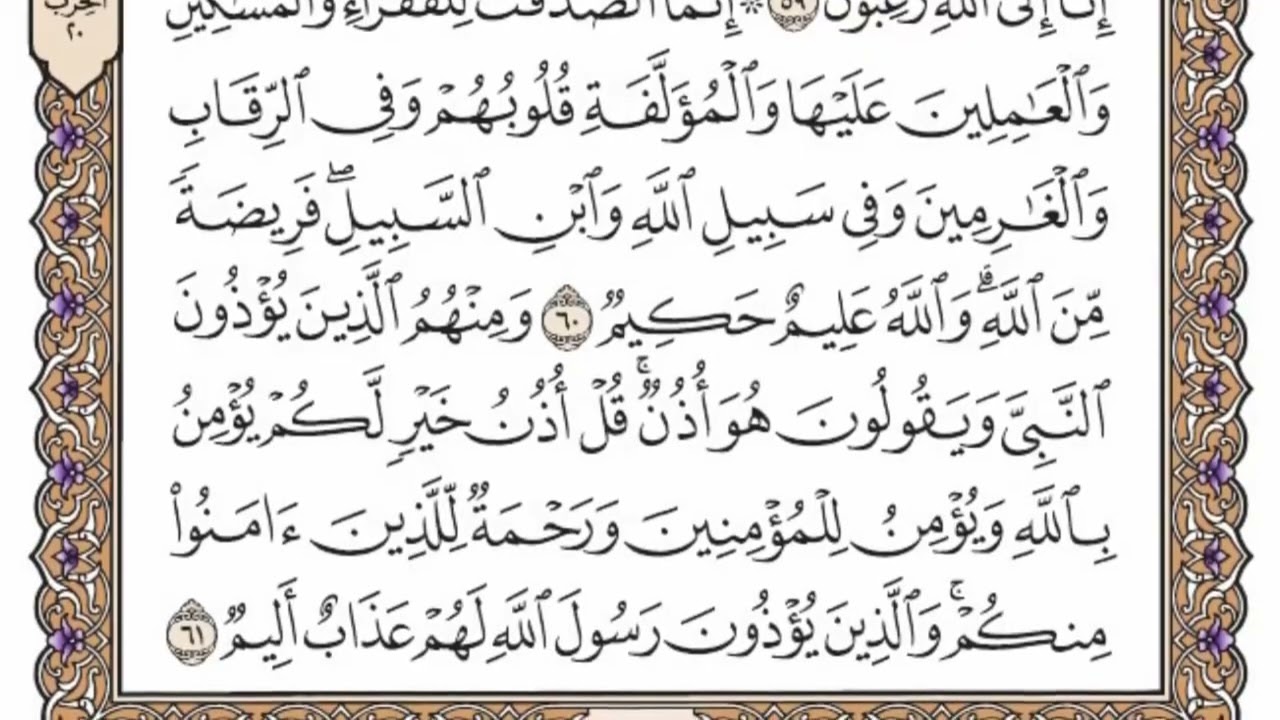 الحزب
٢٠
إِنَّآ إِلَى ٱللَّهِ رَٰغِبُونَ ٥٩ ۞ إِنَّمَا ٱلصَّدَقَٰتُ لِلْفُقَرَآءِ وَٱلْمَسَٰكِينِ
وَٱلْعَٰمِلِينَ عَلَيْهَا وَٱلْمُؤَلَّفَةِ قُلُوبُهُمْ وَفِى ٱلرِّقَابِ
وَٱلْغَٰرِمِينَ وَفِى سَبِيلِ ٱللَّهِ وَٱبْنِ ٱلسَّبِيلِۖ فَرِيضَةً
مِّنَ ٱللَّهِۗ وَٱللَّهُ عَلِيمٌ حَكِيمٌ ٦٠ وَمِنْهُمُ ٱلَّذِينَ يُؤْذُونَ
ٱلنَّبِىَّ وَيَقُولُونَ هُوَ أُذُنٌۚ قُلْ أُذُنُ خَيْرٍ لَّكُمْ يُؤْمِنُ
بِٱللَّهِ وَيُؤْمِنُ لِلْمُؤْمِنِينَ وَرَحْمَةٌ لِّلَّذِينَ ءَامَنُوا۟
مِنكُمْۚ وَٱلَّذِينَ يُؤْذُونَ رَسُولَ ٱللَّهِ لَهُمْ عَذَابٌ أَلِيمٌ ٦١